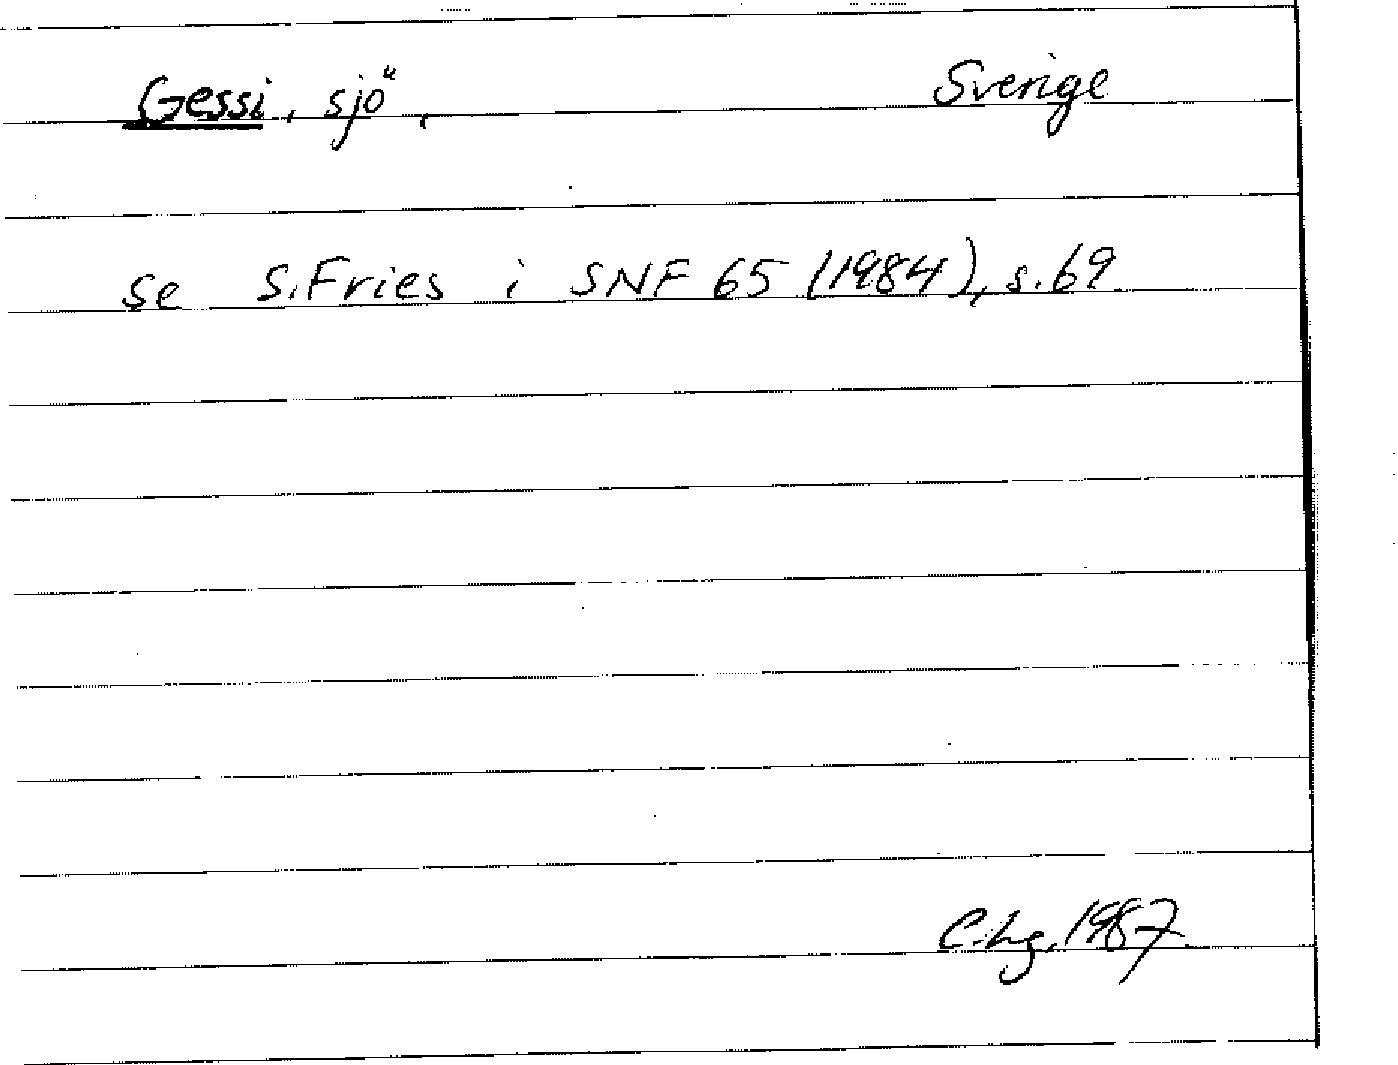 Gessi, sjö, Sverige
se S. Fries i SNF 65 (1984), s. 69
C. Lg. 1987